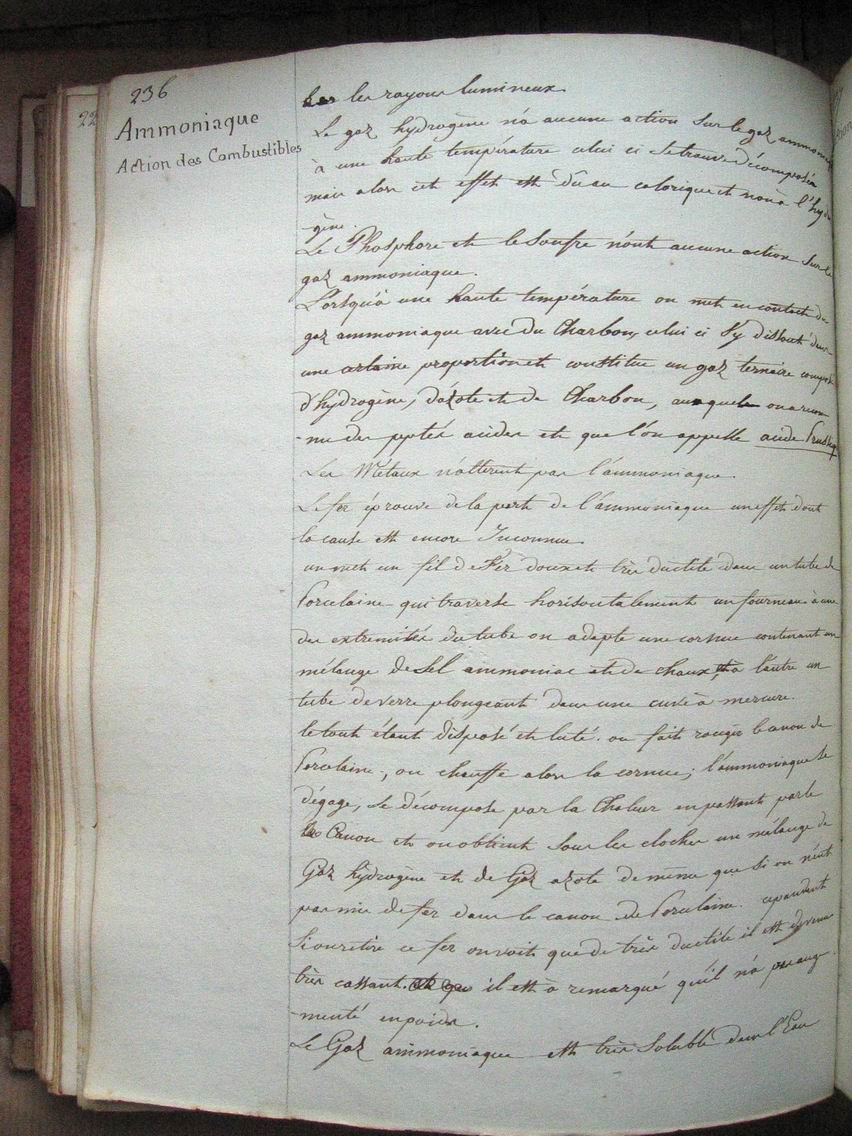 236
Ammoniaque
Action des Combustibles
22
les rayons lumineux
Le gaz hydrogène n'a aucune action sur le gaz ammoniaque
à une haute température celui ci se trouve décomposée
mais alors cet effet est dû au calorique et non à l'hydro
-gène.
Le Phosphore et le Soufre n'ont aucune action sur le
gaz ammoniaque.
Lorsqu'à une haute température on met en contact du
gaz ammoniaque avec du Charbon, celui ci s'y dissout dans
une certaine proportion et constitue un gaz ternaire composé
d'hydrogène, d'azote et de Charbon, auquel on a recon
-nu des ptés acides et que l'on appelle acide Prussiq
Les Métaux n'altèrent pas l'ammoniaque.
Le fer éprouve de la part de l'ammoniaque un effet dont
la cause est encore Inconnue.
on met un fil de Fer doux et très ductile dans un tube de
Porcelaine qui traverse horisontalement un fourneau à une
des extremités du tube on adapte une cornue contenant un
mélange de Sel ammoniac et de chaux, et à l'autre un
tube de verre plongeant dans une cuve à mercure.
le tout étant disposé et luté. on fait rougir le canon de
Porcelaine, on chauffe alors la cornue; l'ammoniaque se
dégage, se décompose par la Chaleur en passant par le
Canon et on obtient sous les cloches un mélange de
Gaz hydrogène et de Gaz azote de même que si on n'eut
pas mis de fer dans le canon de Porcelaine. cependant
Si on retire ce fer on voit que de très ductile il est devenu
très cassant. il est à remarqué qu'il n'a pas aug
-menté en poids.
Le Gaz ammoniaque est très Soluble dans l'Eau